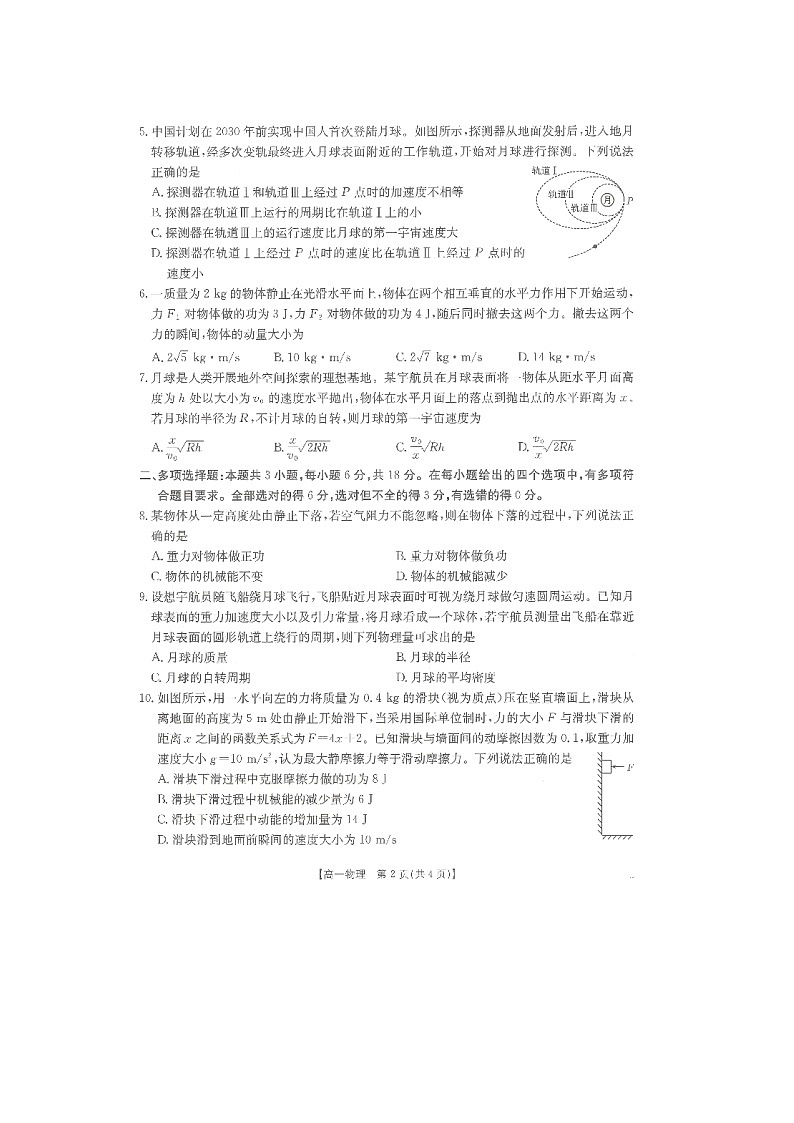 5. 中国计划在 2030 年前实现中国人首次登陆月球。如图所示,探测器从地面发射后,进入地月
转移轨道,经多次变轨最终进入月球表面附近的工作轨道,开始对月球进行探测。下列说法
正确的是
轨道Ⅰ
轨道Ⅱ
轨道Ⅲ
月
P
A. 探测器在轨道Ⅰ和轨道Ⅲ上经过 P 点时的加速度不相等
B. 探测器在轨道Ⅲ上运行的周期比在轨道Ⅰ上的小
C. 探测器在轨道Ⅲ上的运行速度比月球的第一宇宙速度大
D. 探测器在轨道Ⅰ上经过 P 点时的速度比在轨道Ⅱ上经过 P 点时的
速度小
6. 一质量为 2 kg 的物体静止在光滑水平面上,物体在两个相互垂直的水平力作用下开始运动,
力 F₁ 对物体做的功为 3 J,力 F₂ 对物体做的功为 4 J,随后同时撤去这两个力。撤去这两个
力的瞬间,物体的动量大小为
A. 2√5 kg·m/s B. 10 kg·m/s C. 2√7 kg·m/s D. 14 kg·m/s
7. 月球是人类开展地外空间探索的理想基地。某宇航员在月球表面将一物体从距水平月面高
度为 h 处以大小为 v₀ 的速度水平抛出,物体在水平月面上的落点到抛出点的水平距离为 x。
若月球的半径为 R,不计月球的自转,则月球的第一宇宙速度为
A. x/v₀ √Rh B. x/v₀ √2Rh C. v₀/x √Rh D. v₀/x √2Rh
二、多项选择题:本题共 3 小题,每小题 6 分,共 18 分。在每小题给出的四个选项中,有多项符
合题目要求。全部选对的得 6 分,选对但不全的得 3 分,有选错的得 0 分。
8. 某物体从一定高度处由静止下落,若空气阻力不能忽略,则在物体下落的过程中,下列说法正
确的是
A. 重力对物体做正功 B. 重力对物体做负功
C. 物体的机械能不变 D. 物体的机械能减少
9. 设想宇航员随飞船绕月球飞行,飞船贴近月球表面时可视为绕月球做匀速圆周运动。已知月
球表面的重力加速度大小以及引力常量,将月球看成一个球体,若宇航员测量出飞船在靠近
月球表面的圆形轨道上绕行的周期,则下列物理量可求出的是
A. 月球的质量 B. 月球的半径
C. 月球的自转周期 D. 月球的平均密度
10. 如图所示,用一水平向左的力将质量为 0.4 kg 的滑块(视为质点)压在竖直墙面上,滑块从
离地面的高度为 5 m 处由静止开始滑下,当采用国际单位制时,力的大小 F 与滑块下滑的
距离 x 之间的函数关系式为 F=4x+2。已知滑块与墙面间的动摩擦因数为 0.1,取重力加
速度大小 g=10 m/s²,认为最大静摩擦力等于滑动摩擦力。下列说法正确的是
A. 滑块下滑过程中克服摩擦力做的功为 8 J
B. 滑块下滑过程中机械能的减少量为 6 J
C. 滑块下滑过程中动能的增加量为 14 J
D. 滑块滑到地面前瞬间的速度大小为 10 m/s
F
【高一物理 第 2 页(共 4 页)】